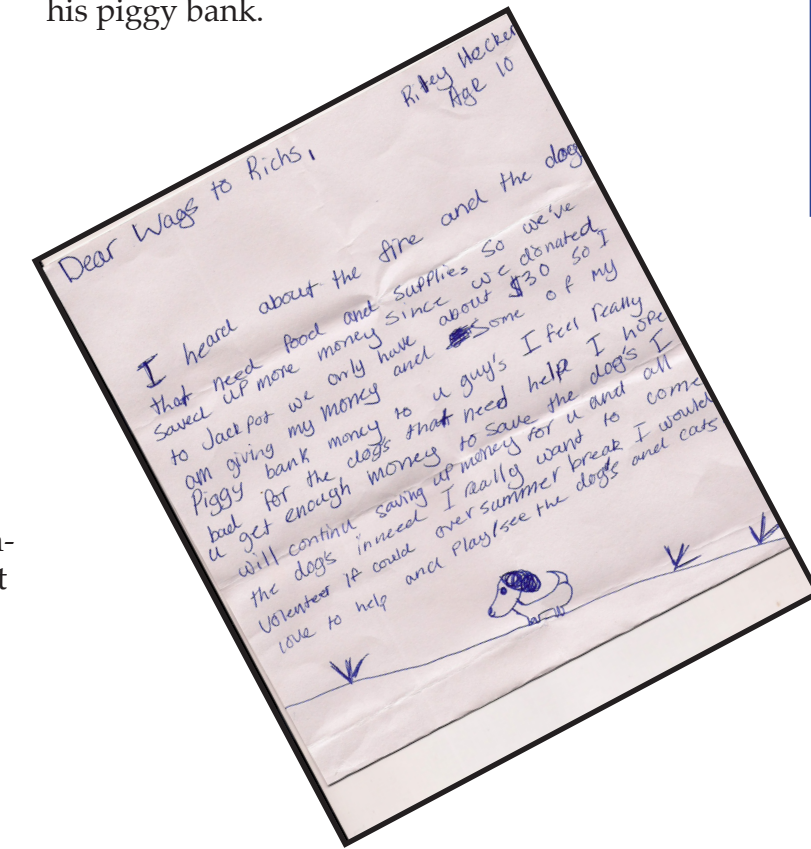 his piggy bank.
Riley Hecker
Age 10
Dear Wags to Richs,
I heard about the fire and the dog
that need food and supplies so we've
saved up more money since we donated
to JackPot we only have about $30 so I
am giving my money and some of my
Piggy bank money to u guy's I feel really
bad for the dog's that need help I hope
u get enough money to save the dog's I
will continu saving up money for u and all
the dog's inneed I really want to come
Volenteer if could over summer break I would
love to help and play/see the dog's and cats
n-
t